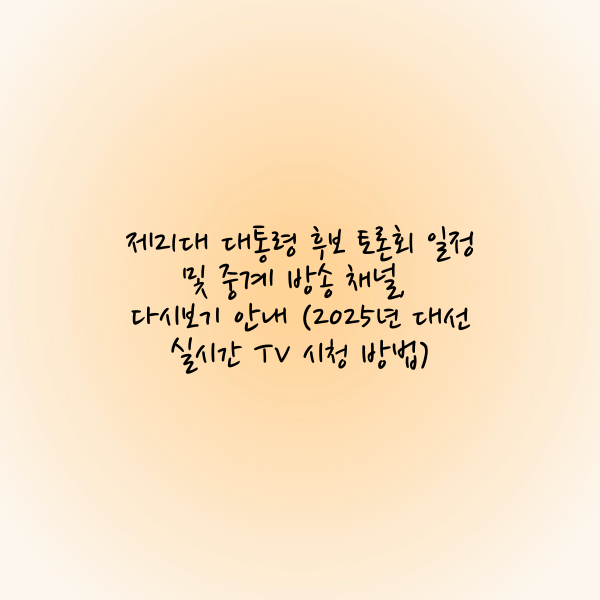 제21대 대통령 후보 토론회 일정
및 중계 방송 채널,
다시보기 안내 (2025년 대선
실시간 TV 시청 방법)